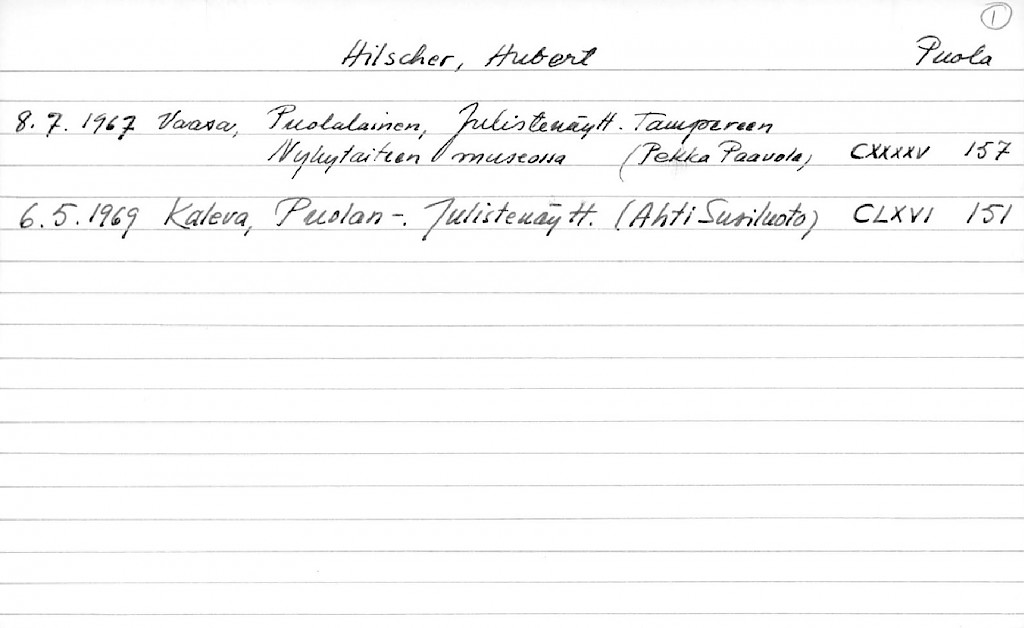 1
Hilscher, Hubert Puola
8. 7. 1967 Vaasa, Puolalainen, Julistenäytt. Tampereen
Nykytaiteen museossa (Pekka Paavola) CXXXXV 157
6. 5. 1969 Kaleva, Puolan -. Julistenäytt. (Ahti Susiluoto) CLXVI 151